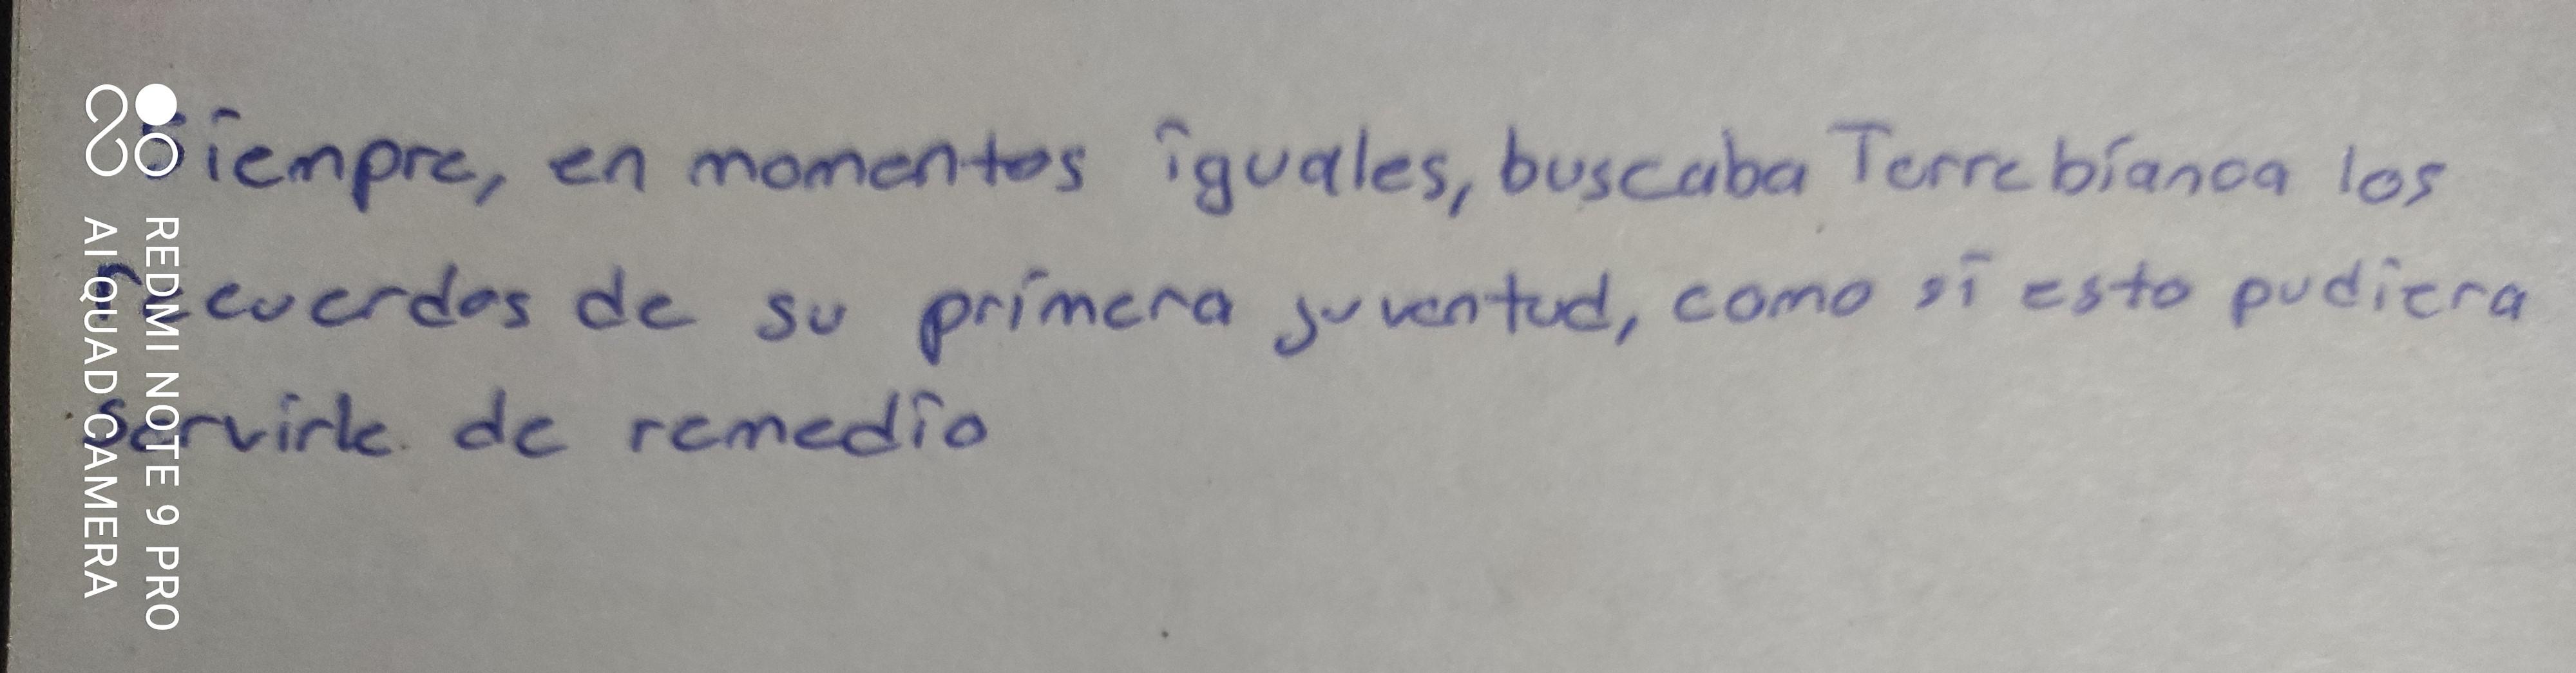 Siempre, en momentos iguales, buscaba Terrebianca los
recuerdos de su primera juventud, como si esto pudiera
servirle de remedio
REDMI NOTE 9 PRO
AI QUAD CAMERA